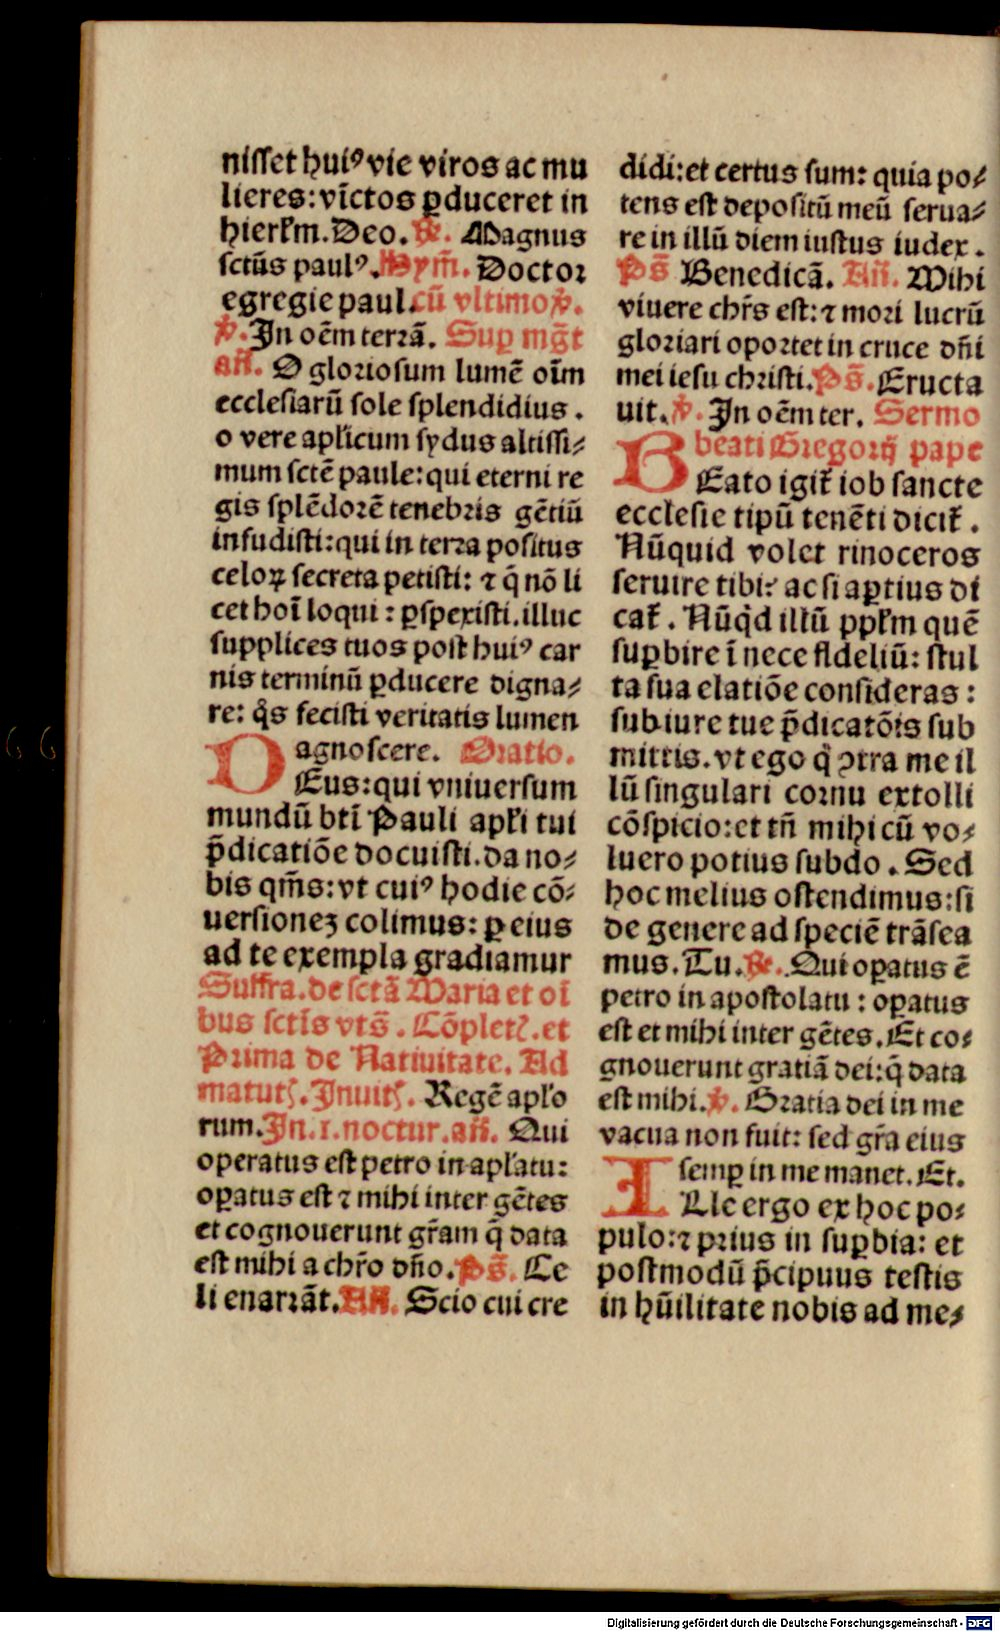 nisset huiꝰ vie viros ac mu
lieres: vīctos ꝑduceret in
hierl̄m. Deo. ℟. Magnus
sctūs paulꝰ. Hym̄. Doctor
egregie paul. cū vltimo ℣.
℣. In oēm terrā. Suꝑ mḡt
an̄. O gloriosum lumē oīm
ecclesiarū sole splendidius.
o vere apl̄icum sydus altissi⸗
mum sctē paule: qui eterni re
gis splēdorē tenebris gētiū
infudisti: qui in terra positus
celoꝝ secreta petisti: ⁊ q̄ nō li
cet hoī loqui: ꝑspexisti. illuc
supplices tuos post huiꝰ car
nis terminū ꝑducere digna⸗
re: q̊s fecisti veritatis lumen
agnoscere. Oratio.
DEus: qui vniuersum
mundū btī Pauli apl̄i tui
p̄dicatiōe docuisti. da no⸗
bis qm̄s: vt cuiꝰ hodie cō⸗
uersionez colimus: ꝑ eius
ad te exempla gradiamur
Suffra. de sctā Maria et oī
bus sctīs vts̄. Cōplet̉. et
Prima de Natiuitate. Ad
matut̉. Inuit̉. Regē apl̄o
rum. In. 1. noctur. an̄. Qui
operatus est petro in apl̄atu:
oꝑatus est ⁊ mihi inter gētes
et cognouerunt gr̄am q̄ data
est mihi a chr̄o dn̄o. Ps̄. Ce
li enarrāt. An̄. Scio cui cre
didi: et certus sum: quia po⸗
tens est depositū meū serua⸗
re in illū diem iustus iudex.
Ps̄. Benedicā. An̄. Mihi
viuere chr̄s est: ⁊ mori lucrū
gloriari oportet in cruce dn̄i
mei iesu christi. Ps̄. Eructa
uit. ℣. In oēm ter. Sermo
beati Gregorij pape
BEato igit̄ iob sancte
ecclesie tipū tenēti dicit̄.
Nūquid volet rinoceros
seruire tibi? ac si aꝑtius di
cat̄. Nūq̇d illū ppl̄m quē
suꝑbire ī nece fideliū: stul
ta sua elatiōe consideras:
sub iure tue p̄dicatōis sub
mittis. vt ego q̄ ꝯtra me il
lū singulari cornu extolli
cōspicio: et tn̄ mihi cū vo⸗
luero potius subdo. Sed
hoc melius ostendimus: si
de genere ad speciē trāsea
mus. Tu. ℟. Qui oꝑatus ē
petro in apostolatu: oꝑatus
est et mihi inter gētes. Et co⸗
gnouerunt gratiā dei: q̄ data
est mihi. ℣. Gratia dei in me
vacua non fuit: sed gr̄a eius
semꝑ in me manet. Et.
ILle ergo ex hoc po⸗
pulo: ⁊ prius in suꝑbia: et
postmodū p̄cipuus testis
in hūilitate nobis ad me⸗
Digitalisierung gefördert durch die Deutsche Forschungsgemeinschaft - DFG